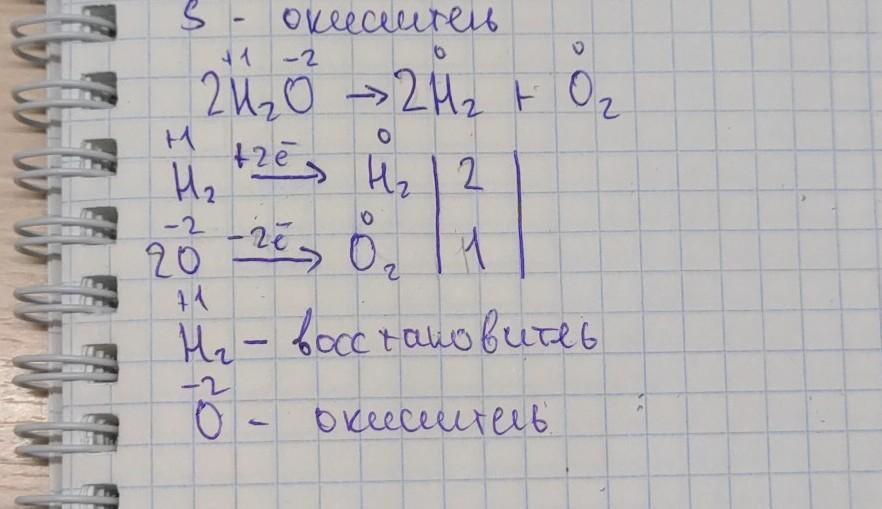 S - окислитель
+1 -2 0 0
2H₂O → 2H₂ + O₂
+1 0
H₂ +2ē → H₂ | 2 |
-2 0
2O -2ē → O₂ | 1 |
+1
H₂ - восстановитель
-2
O - окислитель